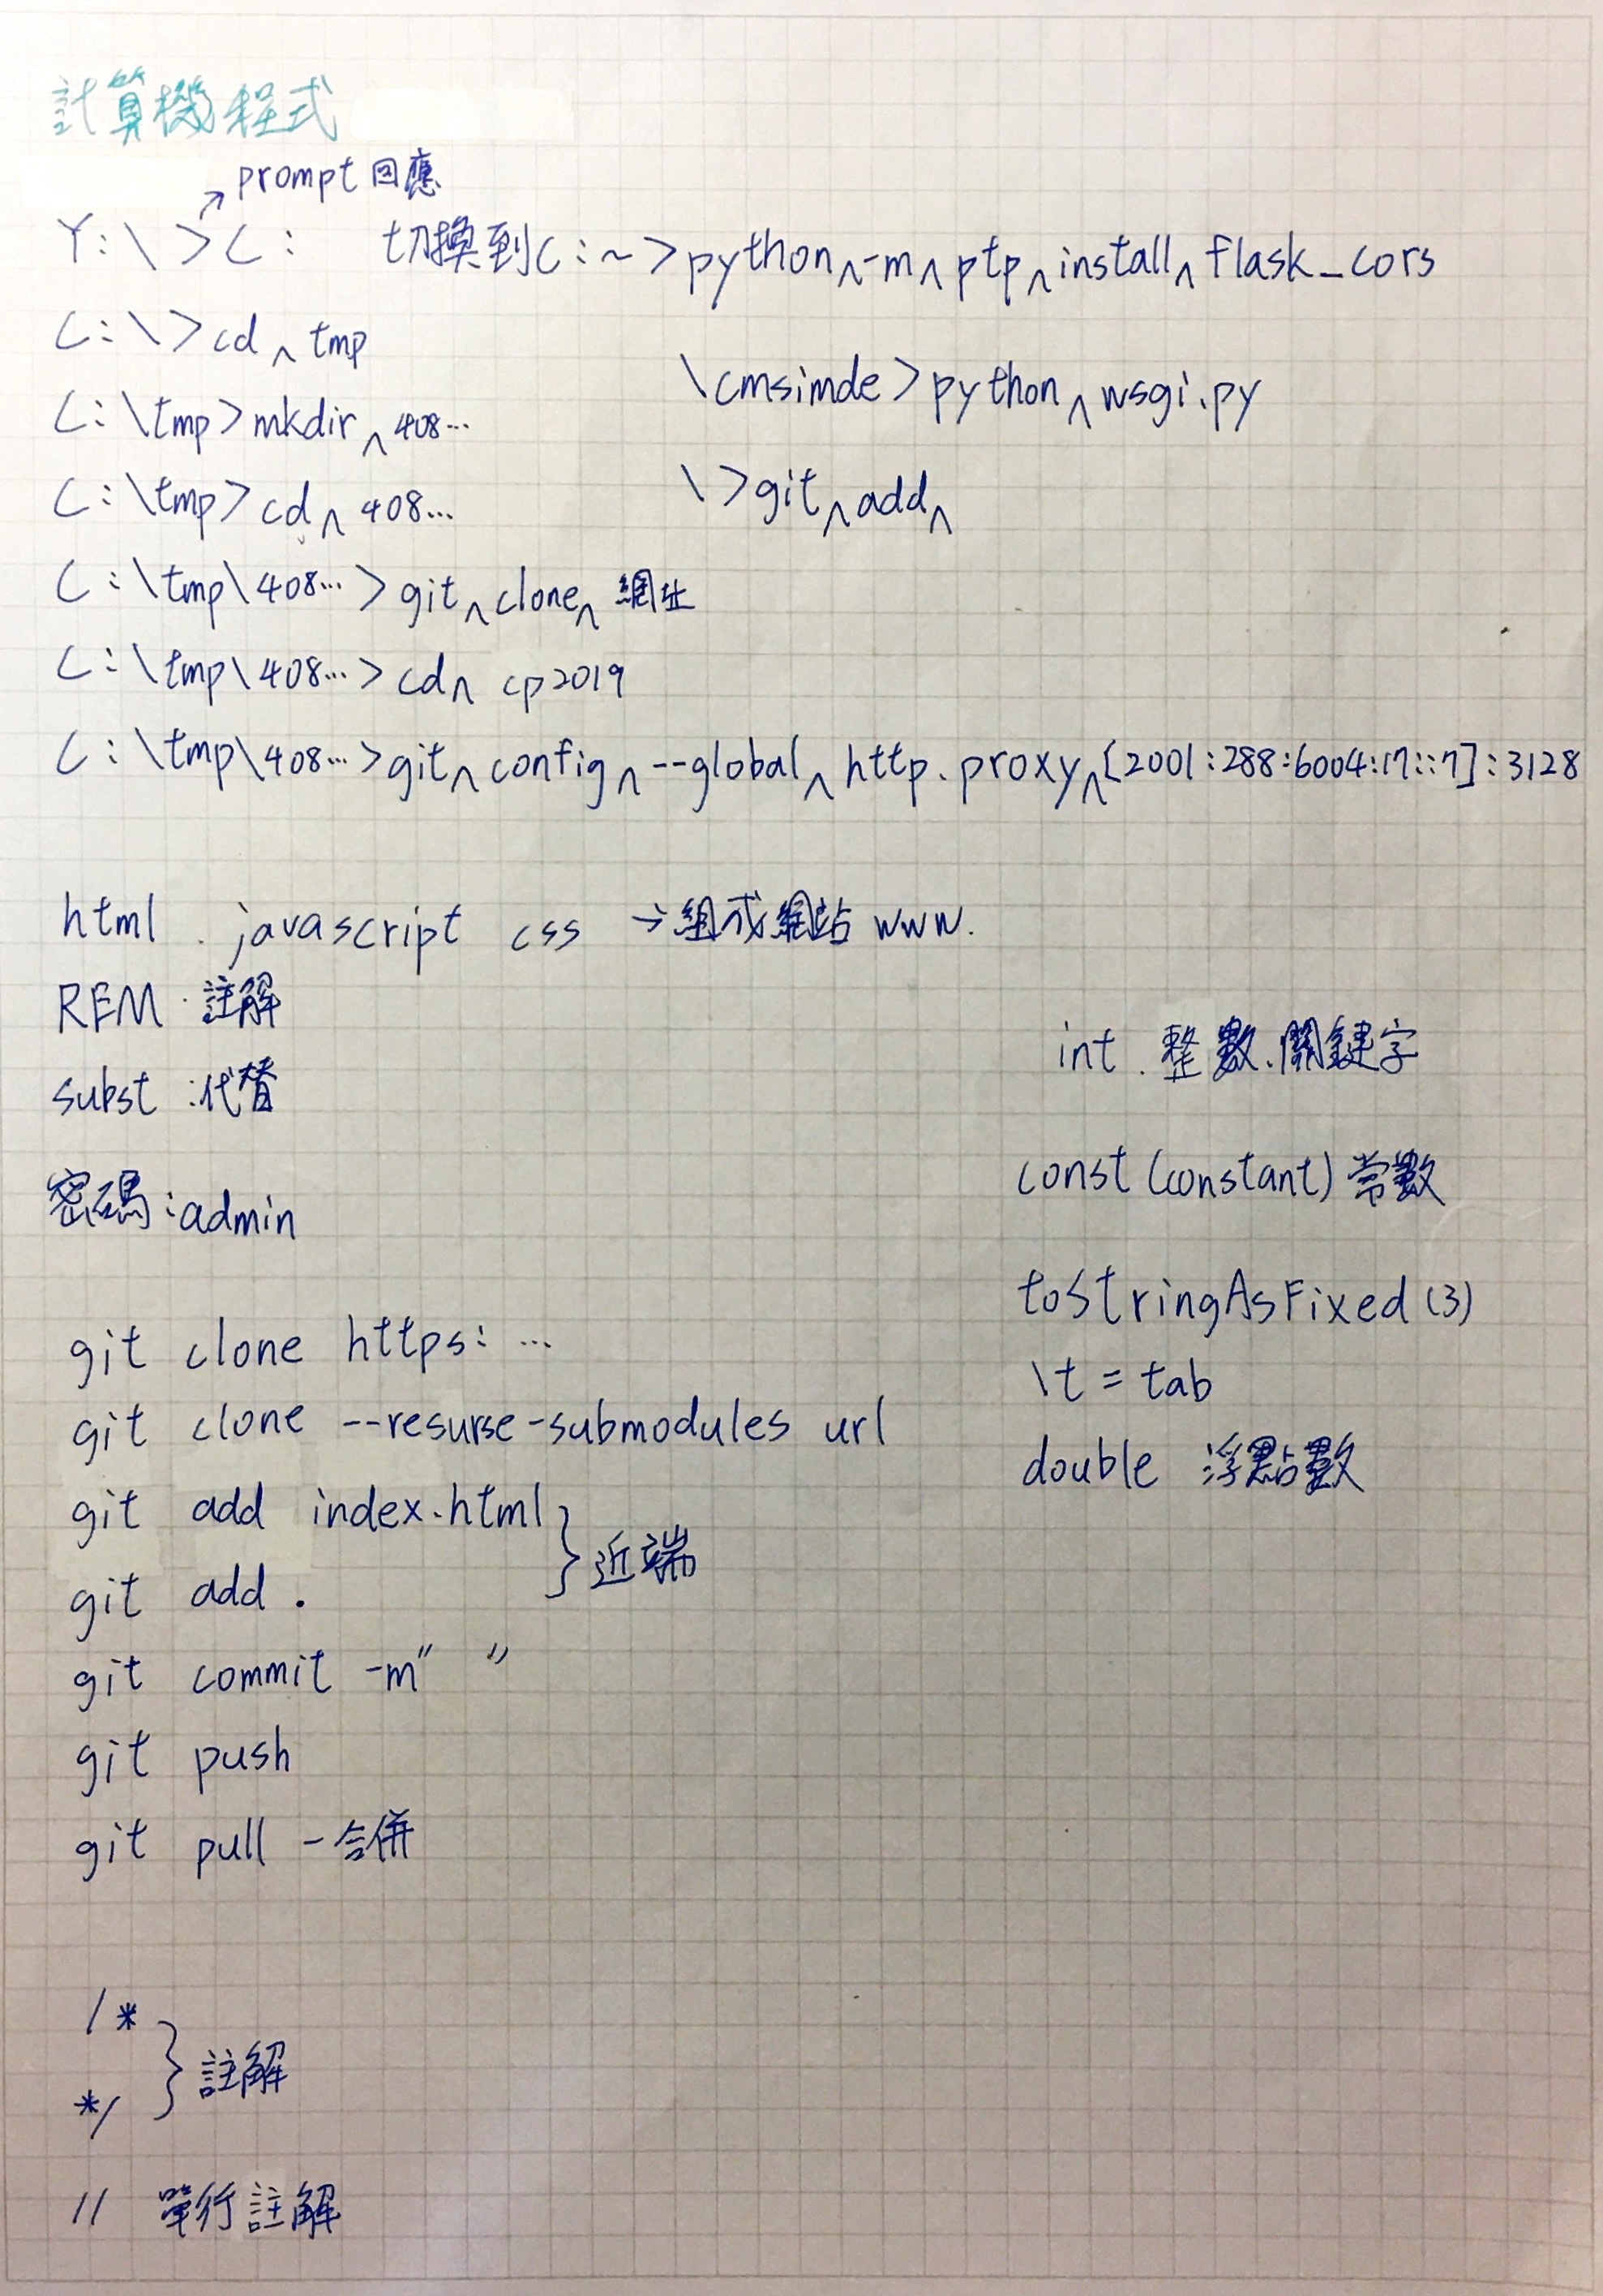 計算機程式
prompt 回應
Y:\>C: 切換到C:~>python^-m^ptp^install^flask_cors
C:\>cd^tmp
\cmsimde>python^wsgi.py
C:\tmp>mkdir^408...
\>git^add^
C:\tmp>cd^408...
C:\tmp\408...>git^clone^網址
C:\tmp\408...>cd^cp2019
C:\tmp\408...>git^config^--global^http.proxy^[2001:288:6004:17::7]:3128
html . javascript css →組成網站 www.
REM . 註解
int . 整數、關鍵字
subst :代替
const (constant) 常數
密碼:admin
toStringAsFixed (3)
git clone https: ...
\t = tab
git clone --resurse-submodules url
double 浮點數
git add index.html
git add .
} 近端
git commit -m" "
git push
git pull - 合併
/*
*/
} 註解
// 單行註解